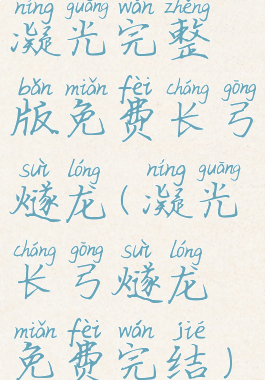 níng guāng wán zhěng
凝光完整
bǎn miǎn fèi cháng gōng
版免费长弓
suì lóng níng guāng
燧龙(凝光
cháng gōng suì lóng
长弓燧龙
miǎn fèi wán jié
免费完结)